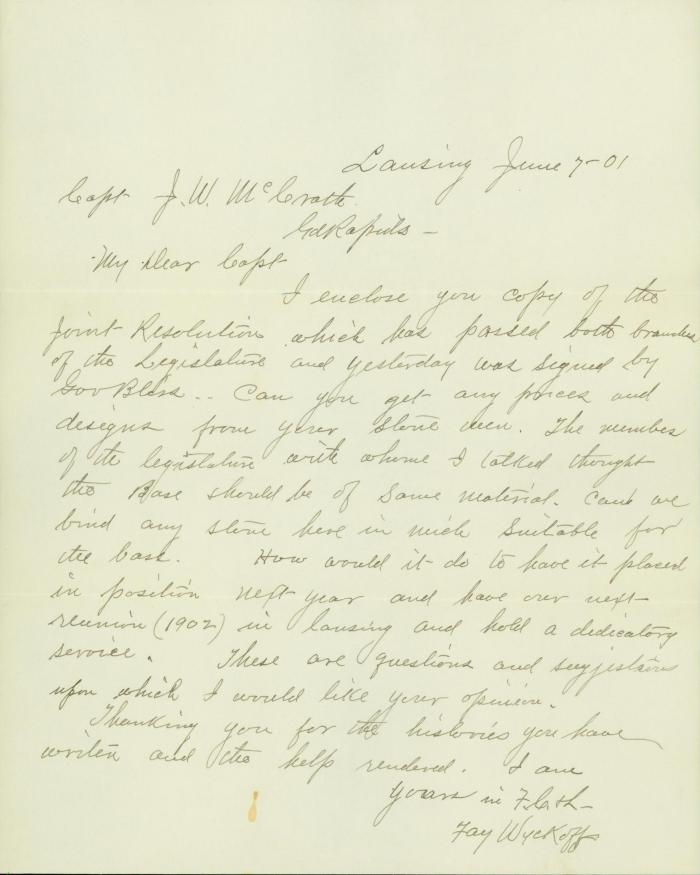 Lansing June 7-01
Capt J. W. McCrath
Gd Rapids -
My Dear Capt
I enclose you copy of the
Joint Resolution which has passed both branches
of the Legislature and yesterday was signed by
Gov Bliss.. Can you get any prices and
designs from your stone men. The member
of the legislature with whome I talked thought
the Base should be of same material. Can't we
bind any stone here in mich Suitable for
the base. How would it do to have it placed
in position next year and have our next
reunion (1902) in lansing and hold a dedicatory
service. These are questions and suggistions
upon which I would like your opinion.
Thanking you for the histories you have
writen and the help rendered. I am
Yours in F.C. & L-
Fay Wyckoff